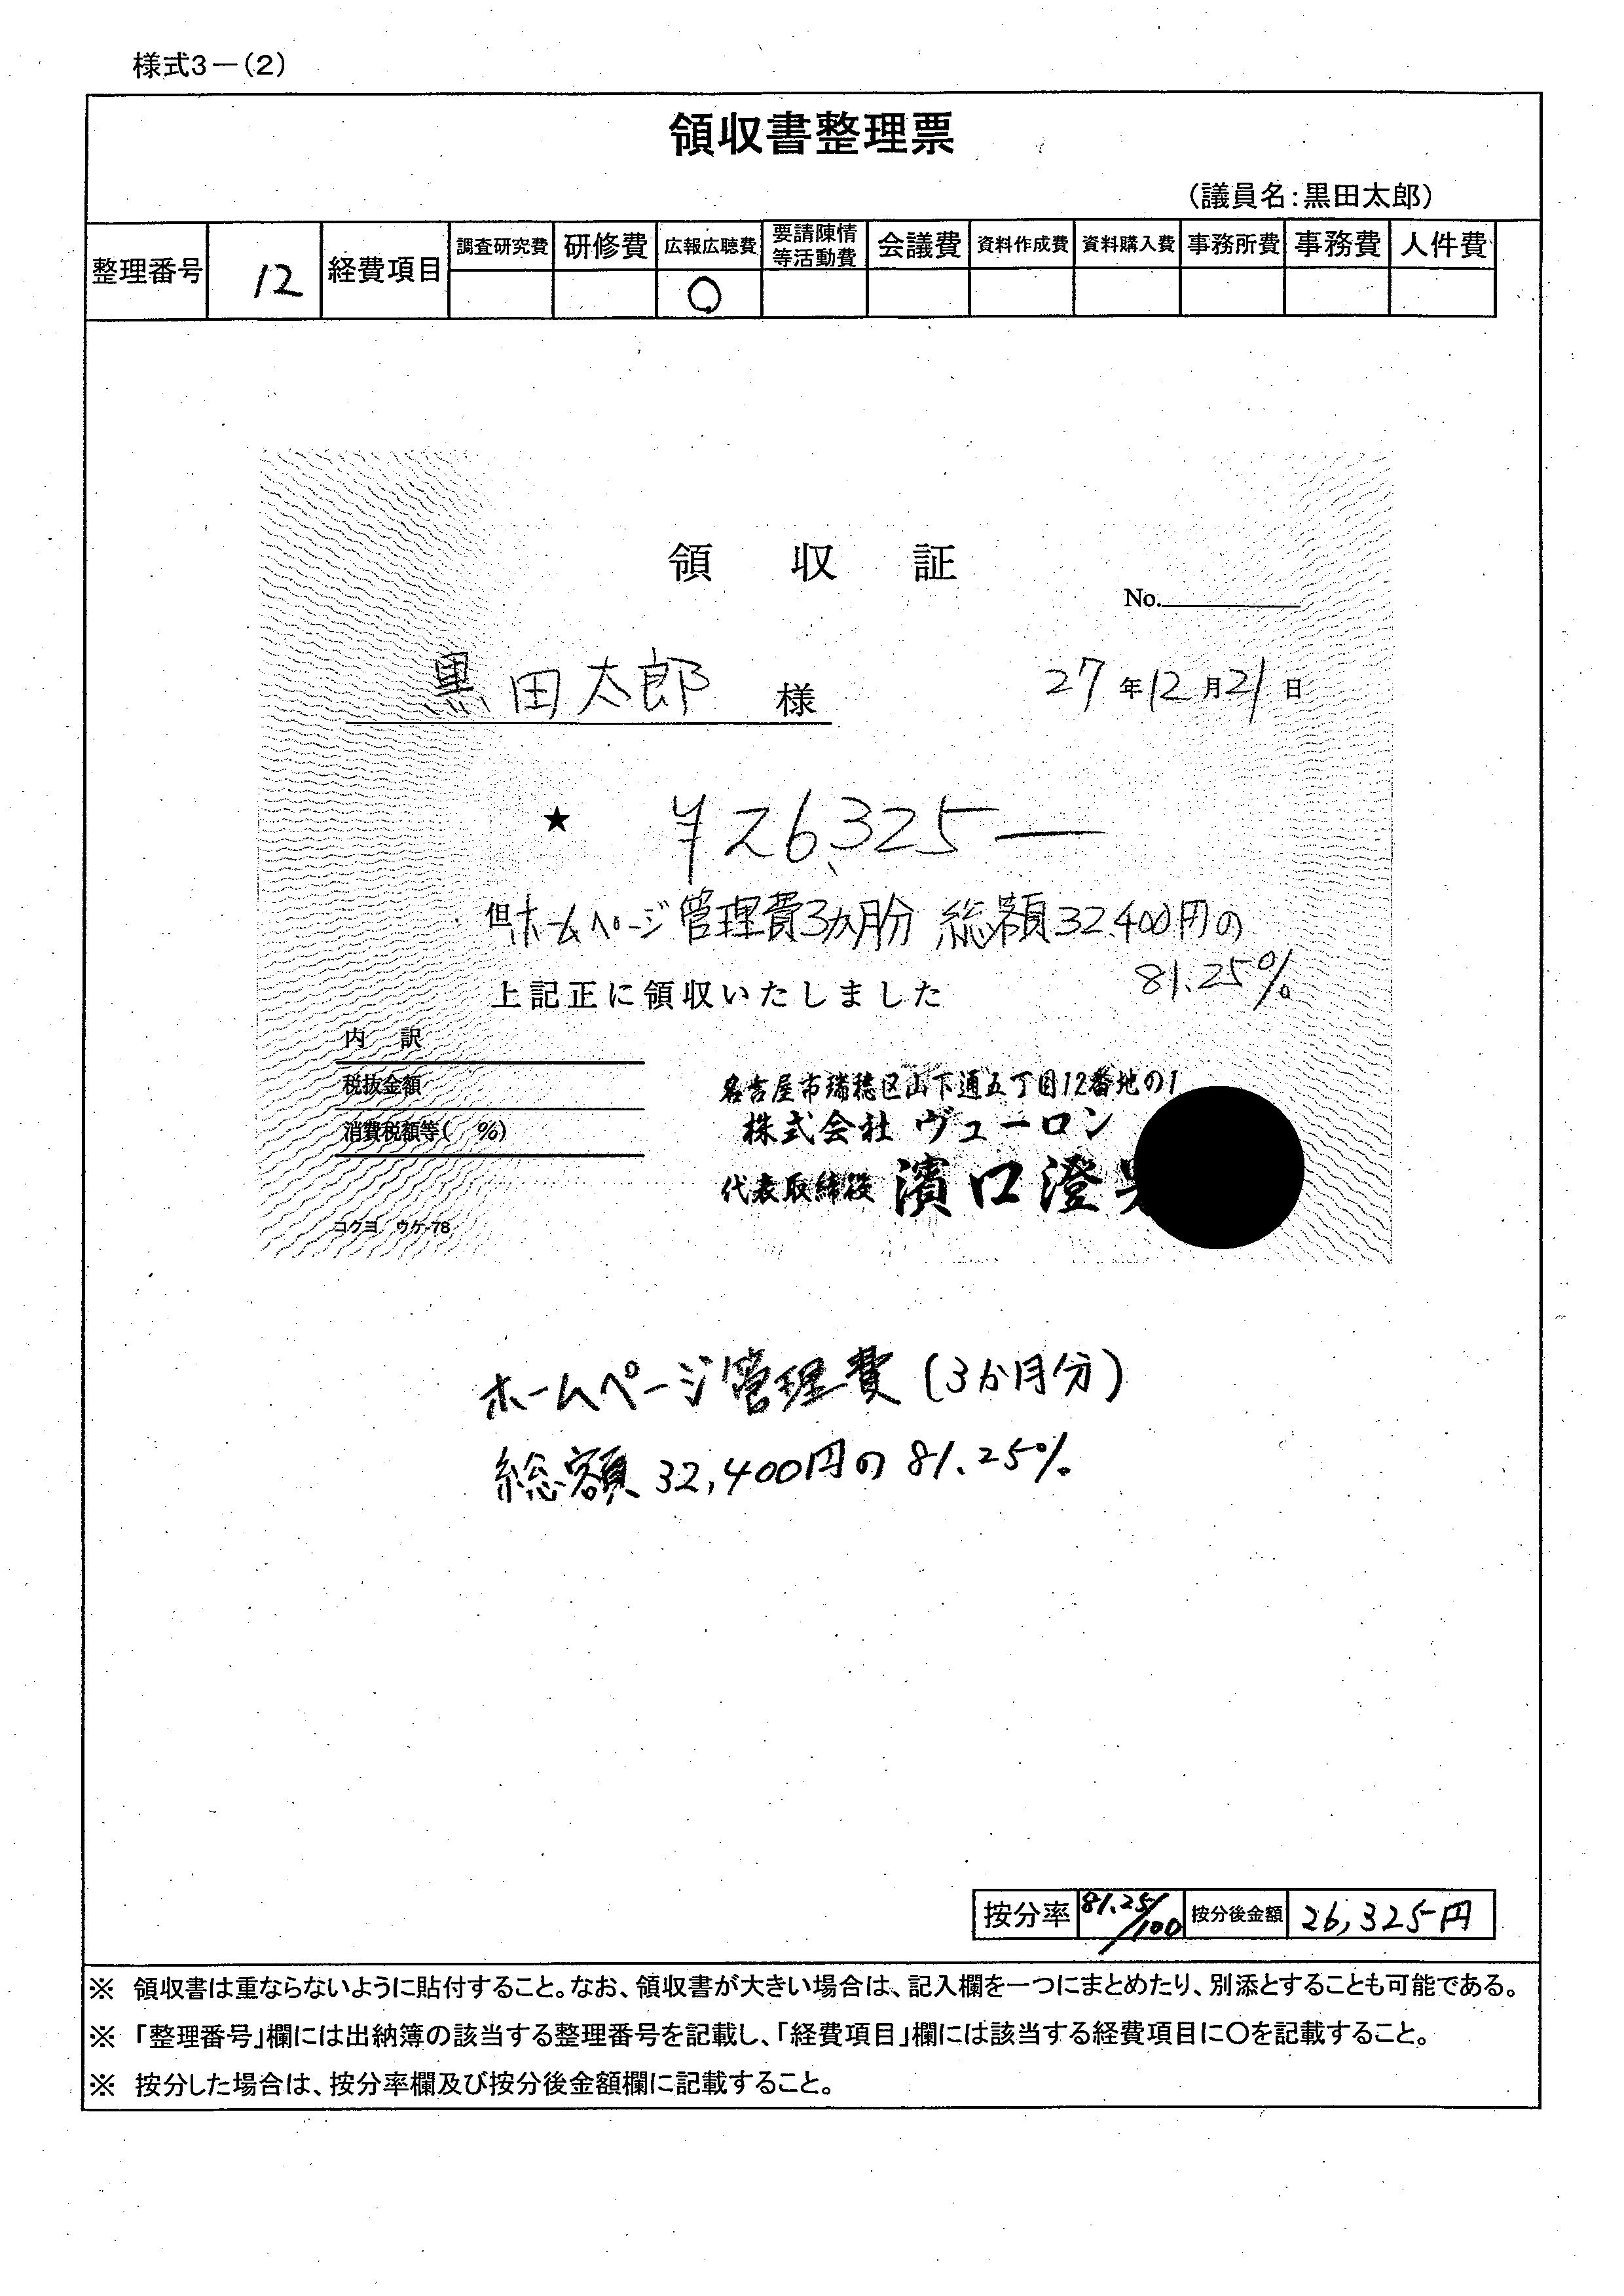 様式3－(2)
領収書整理票
(議員名:黒田太郎)
整理番号 12 経費項目 調査研究費 研修費 広報広聴費 要請陳情等活動費 会議費 資料作成費 資料購入費 事務所費 事務費 人件費
○
領収証
No.
黒田太郎 様 27年12月21日
★ ¥26,325―
但ホームページ管理費3ヵ月分 総額32,400円の
81.25%
上記正に領収いたしました
内訳
税抜金額
消費税額等( %)
コクヨ ウケ-78
名古屋市瑞穂区山下通五丁目12番地の1
株式会社 ヴューロン
代表取締役 濱口澄
ホームページ管理費(3か月分)
総額32,400円の81.25%
按分率 81.25/100 按分後金額 26,325円
※ 領収書は重ならないように貼付すること。なお、領収書が大きい場合は、記入欄を一つにまとめたり、別添とすることも可能である。
※ 「整理番号」欄には出納簿の該当する整理番号を記載し、「経費項目」欄には該当する経費項目に○を記載すること。
※ 按分した場合は、按分率欄及び按分後金額欄に記載すること。